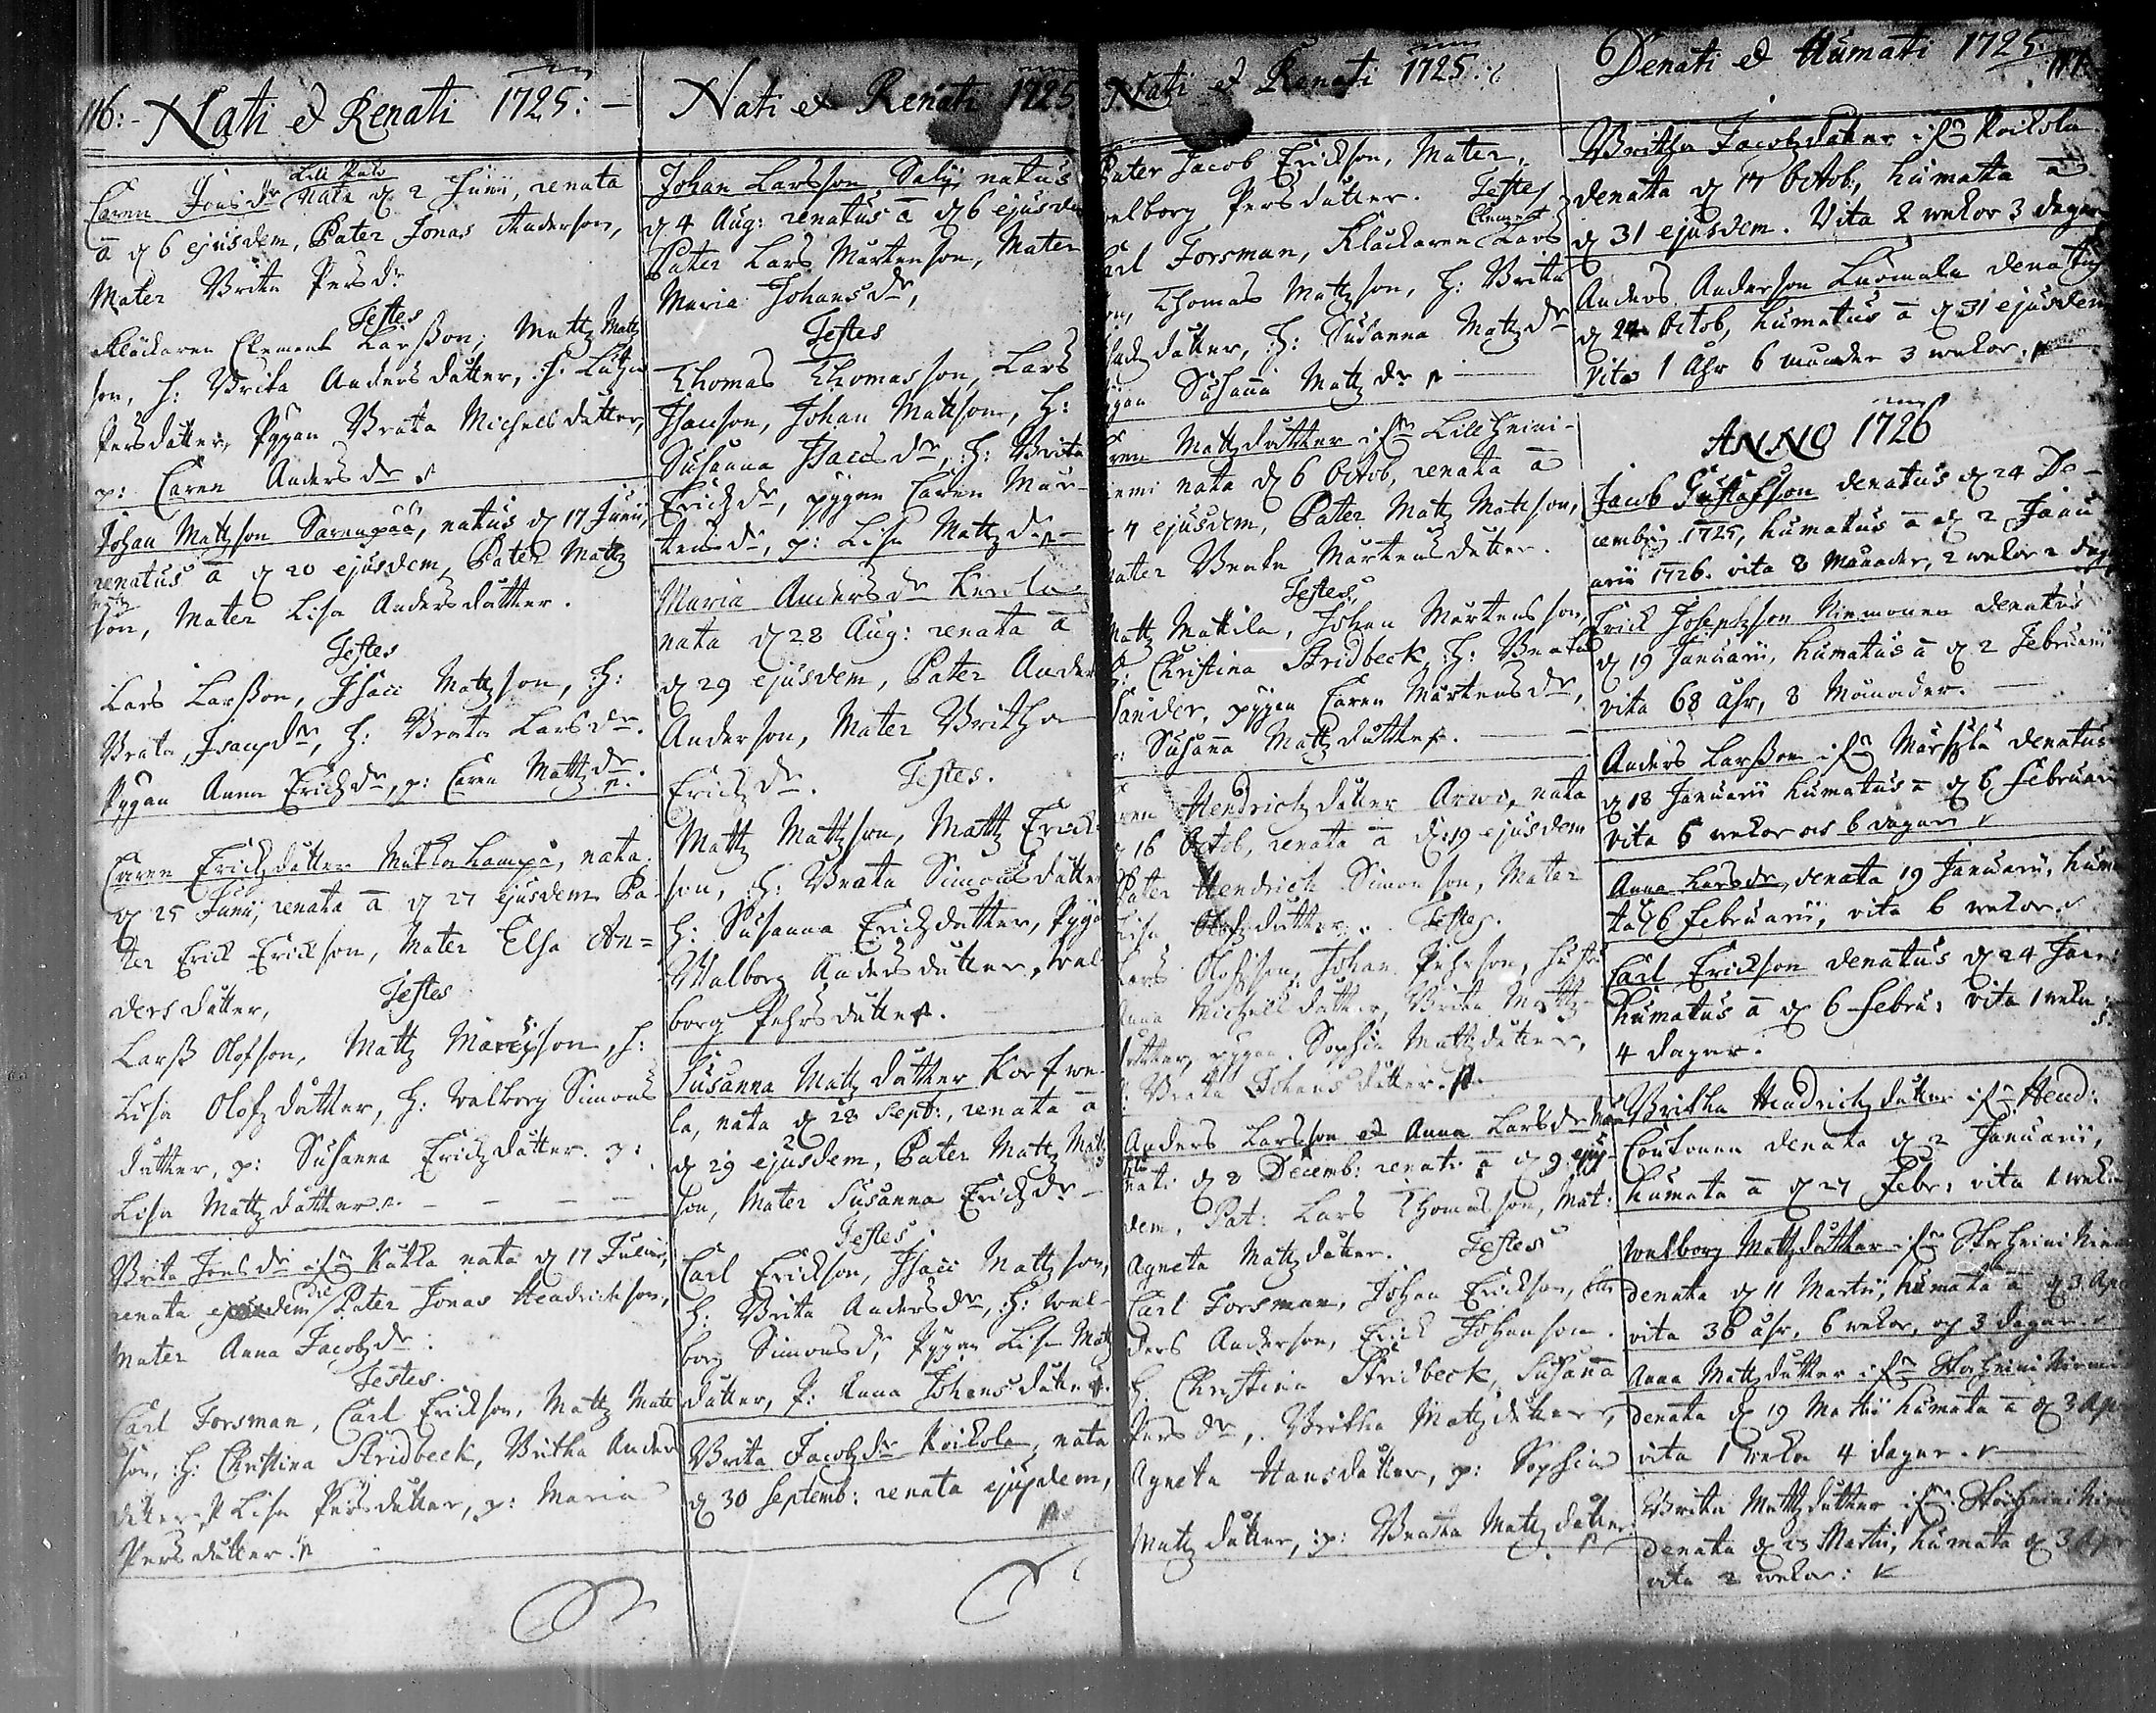 116: Nati et Renati 1725:
Lill Kulo
Caren Jonsdr nata d 2 Junii, renata
a d 6 ejusdem, Pater Jonas Anderson,
Mater Brita Persdr
Testes
Klåckaren Clement Larsson, Mattz Mattz
son, h: Brita Andersdotter, h.
Persdotter, Pygan Beata Michelsdotter,
p: Caren Andersdr
Johan Mattzson Sarenpää, natus d 17 Junii,
renatus a d 20 ejusdem, Pater Mattz
son, Mater Lisa Andersdotter.
Testes
Lars Larsson, Isaac Mattzson, h:
Beata h: Beata Larsdr.
Pygan Anna Erichzdr, p: Caren Mattzdr.
Caren Erichzdotter nata
d 25 Junii, renata a d 27 ejusdem Pa-
ter Erick Erickson, Mater Elsa An=
dersdotter,
Testes
Larss Olofson, Mattz h:
Lisa Olofzdotter, h: Walborg Simons
dotter, p: Susanna Erichzdotter. p:
Lisa Mattzdotter
Brita Jonsdr ifrn Kukla nata d 17 Julii,
renata ejusdem die Pater Jonas Hendrickson,
Mater Anna Jacobzdr.
Testes.
Carl Forsman, Carl Erickson, Mattz Matt
son, h: Christina Stridbeck, Britha Anders
dotter, P Lisa Persdotter, p: Maria
Persdotter.
Nati et Renati 1725
Johan Larsson Salij natus
d 4 Aug: renatus a d 6 ejusdem
Pater Lars Mårtenson, Mater
Maria Johansdr,
Testes
Thomas Thomasson, Lars
Johan Mattson, h:
Susanna Isacsdr, h: Brita
Erichzdr, pygan Caren Mår-
tensdr, p: Lisa Mattzdr
Maria Andersdr
nata d 28 Aug: renata a
d 29 ejusdem, Pater Anders
Anderson, Mater Britha
Erichzdr. Testes.
Mattz Mattzson, Mattz Erick-
son, h: Beata Simonsdotter
h: Susanna Erichzdotter, Pyga
Walborg Andersdotter, Wal-
borg Pehrsdotter.
Susanna Mattzdotter Korfwe-
la, nata d 28 Sept:, renata a
d 29 ejusdem, Pater Mattz Mattz
son, Mater Susanna Erichzdr
Testes
Carl Erickson, Isacc Mattzson,
h: Brita Andersdr, h: Wal-
borg Simonsdr, Pygan Lisa Mattz
dotter, P: Anna Johansdotter.
Brita Jacobzdr Koikola, nata
d 30 Septemb: renata ejusdem,
Nati et Renati 1725:
Pater Jacob Erickson, Mater,
elborg Persdotter. Testes
Clement
arl Forsman, Klåckaren Lars
on, Thomas Mattzson, h: Brita
dotter, h: Susanna Matzdr
gan Susanna Mattzdr
ren Mattzdotter ifrn Lill Heini-
emi nata d 6 Octob, renata a
7 ejusdem, Pater Mattz Mattson,
ater Beata Mårtensdotter.
Testes,
Mattz Mattila, Johan Mårtensson,
h: Christina Stridbeck, h: Beata
Sander, pygan Caren Mårtensdr,
p: Susanna Mattzdotter.
ren Hendrichzdotter Arwi, nata
d 16 Octob, renata a d 19 ejusdem
Pater Hendrich Simonson, Mater
Lisa Olofzdotter. Testes.
Lars Olofsson, Johan Pehrson, hustr
Anna Michelsdotter, Brita Mattz-
dotter, pygan Sophia Mattzdotter,
p: Beata Johansdotter.
Anders Larsson et Anna Larsdr
nati d 8 Decemb: renati a d 9 ejus-
dem, Pat: Lars Thomasson, Mat:
Agneta Mattzdotter. Testes
Carl Forsman, Johan Erickson, An
ders Anderson, Erick Johanson.
h. Christina Stridbeck, Susanna
Persdr, Britha Mattzdotter,
Agneta Hansdotter, p: Sophia
Mattzdotter, p: Beata Mattzdotter
Denati et Humati 1725: 117.
Britha Jacobzdotter ifrn Koikola
denata d 17 Octob, humata a
d 31 ejusdem. Vita 2 wekor 3 dagar
Anders Anderson Luomala denatus
d 24 Octob, humatus a d 31 ejusdem
Vita 1 åhr 6 månader 3 wekor.
ANNO 1726
Jacob Gustafson denatus d 24 De-
cembris 1725, humatus a d 2 Janu
arii 1726. vita 8 Månader, 2 wekor 2 dag
Erick Josephson Niemonen denatus
d 19 Januarii, humatus a d 2 Februarii
vita 68 åhr, 8 Månader.
Anders Larsson ifrn denatus
d 18 Januarii humatus a d 6 Februari
vita 6 wekor os 6 dagar
Anna Larsdr, denata 19 Januarii, huma
ta d 6 Februarii, vita 6 wekor.
Carl Erickson denatus d 24 Jan
humatus a d 6 Febru: vita 1 weka
4 dagar.
Britha Hendrichzdotter ifrn Hend:
Contonen denata d 2 Januarii,
humata a d 27 Febr: vita 1 wek
Walborg Mattzdotter ifrn Stor Heini Niem
denata d 11 Martii, humata a d 3 Apr
vita 36 åhr, 6 wekor, os 3 dagar
Anna Mattzdotter ifrn Stor Heini Niemi
denata d 19 Martii humata a d 3 Apr
vita 1 weka 4 dagar.
Brita Mattzdotter ifrn Stor Heini Niem
denata d 23 Martii, humata d 3 Apr
vita 2 wekor: